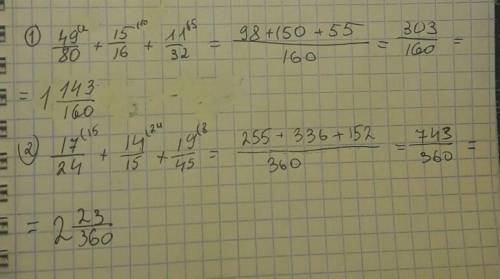 ① 49⁽²/80 + 15⁽¹⁰/16 + 11⁽⁵/32 = 98+150+55/160 = 303/160 =
= 1 143/160
② 17⁽¹⁵/24 + 14⁽²⁴/15 + 19⁽⁸/45 = 255+336+152/360 = 743/360 =
= 2 23/360